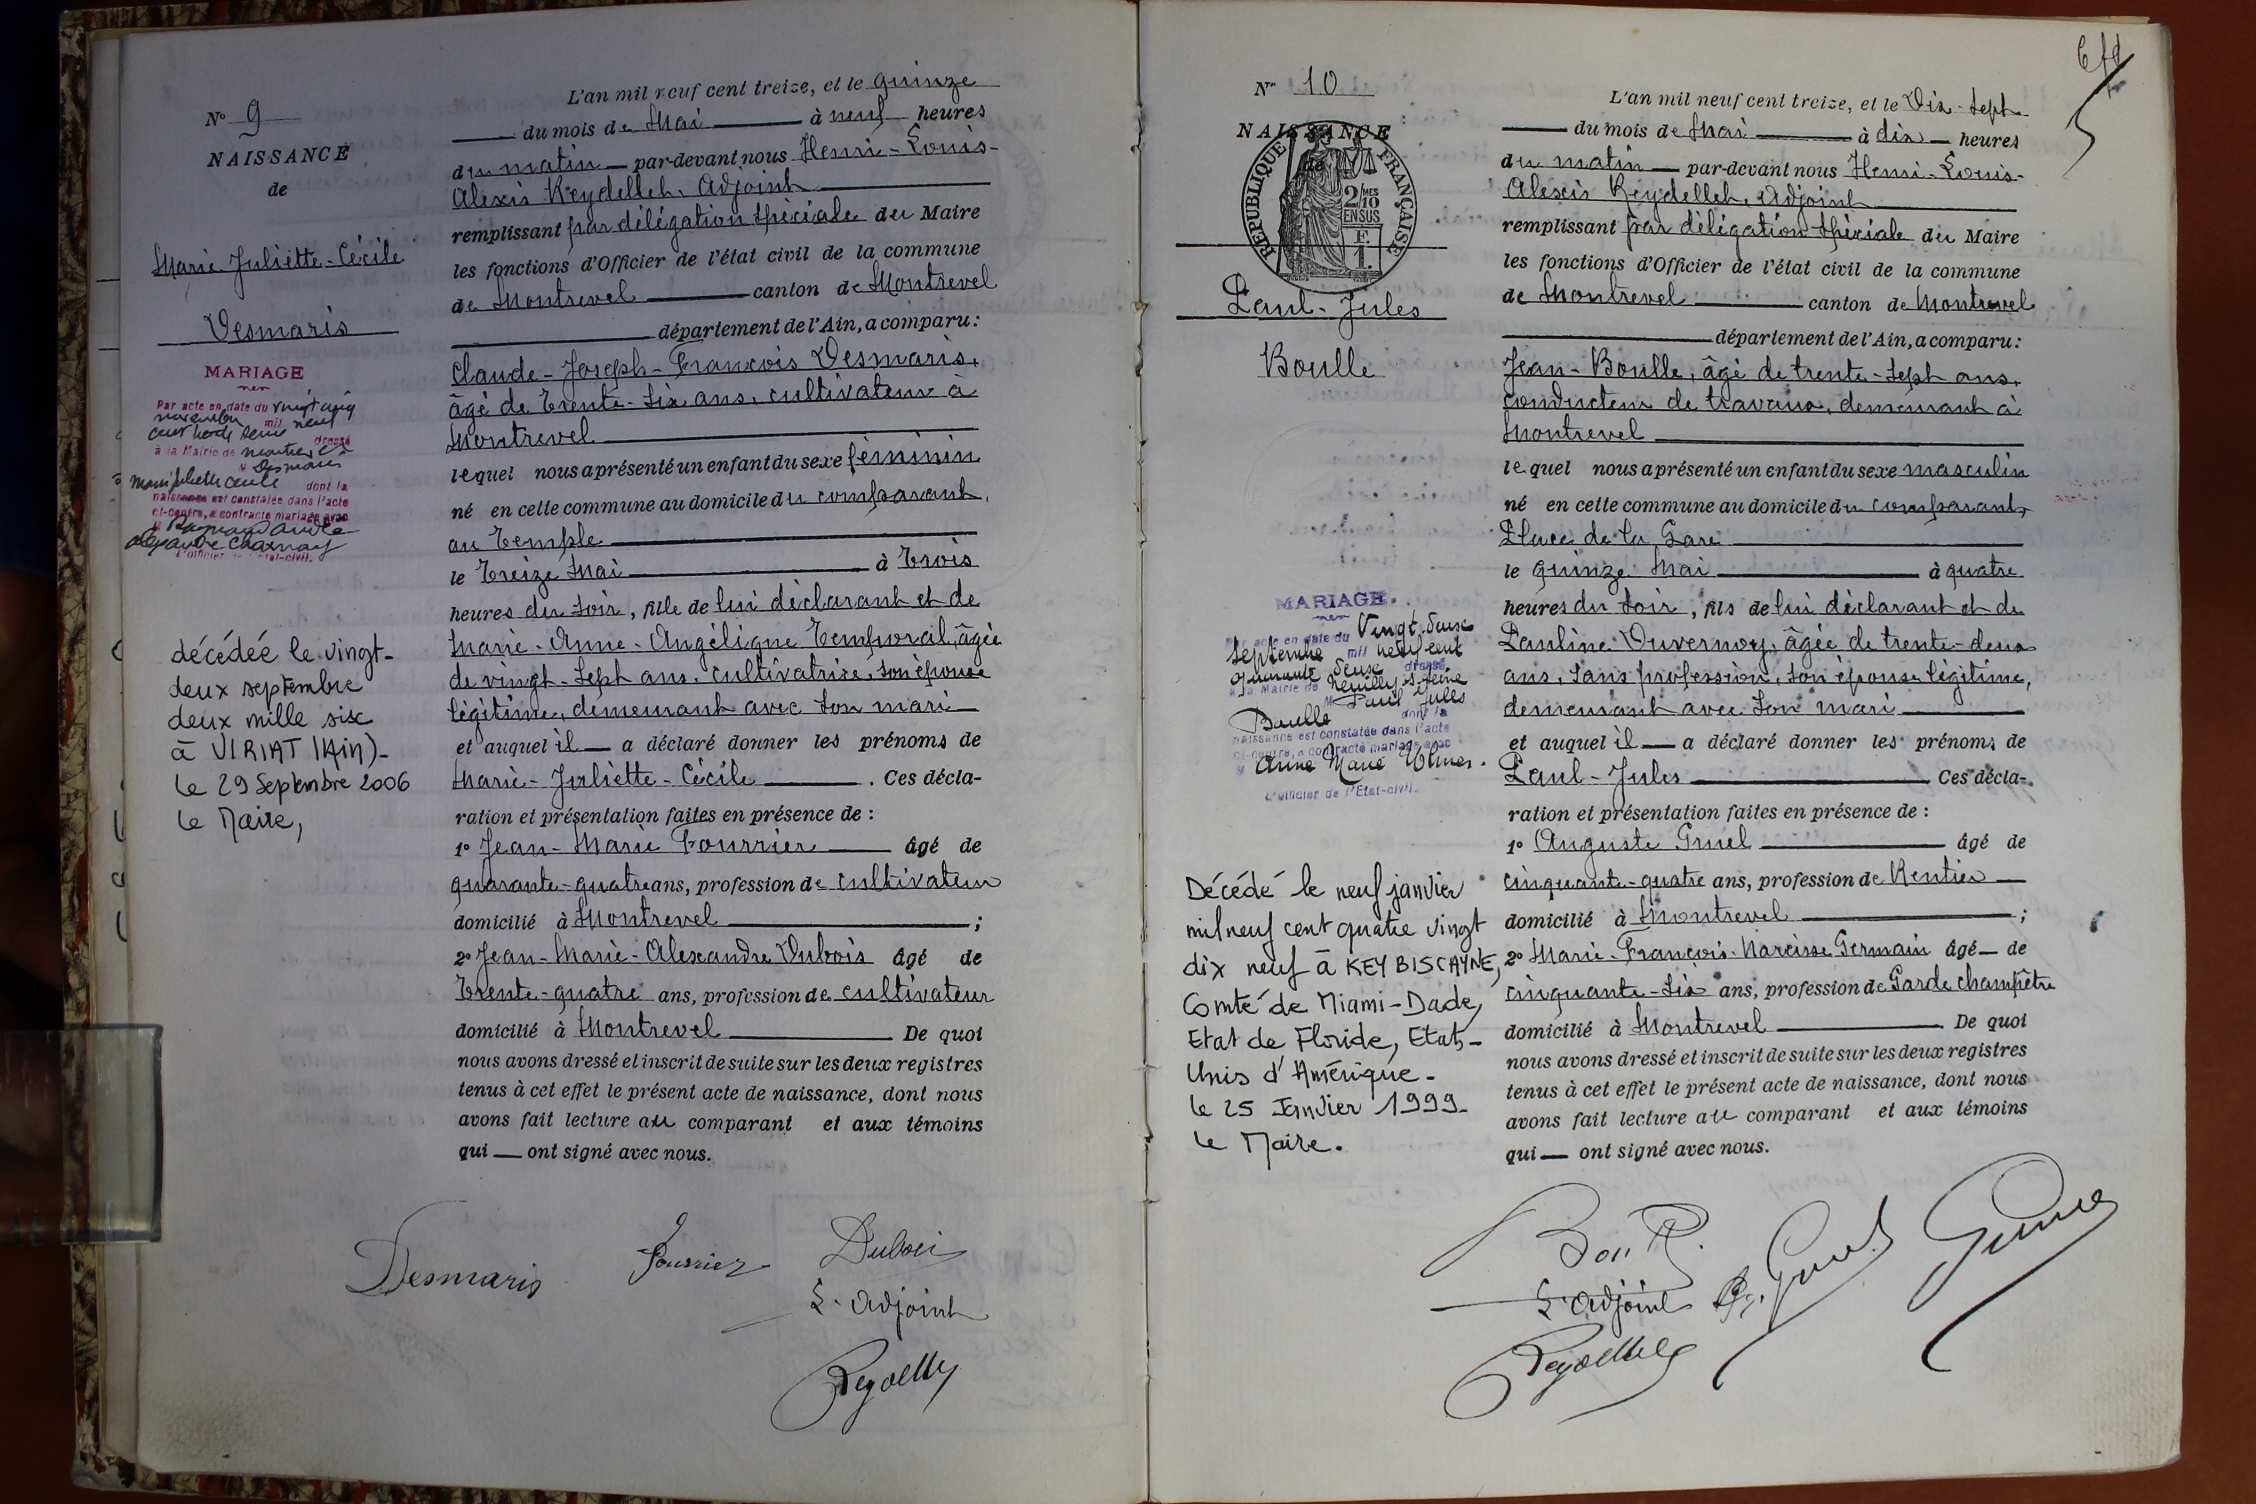 N° 9
NAISSANCE
de
Marie-Juliette-Cécile
Desmaris
MARIAGE
Par acte en date du vingt cinq
novembre mil neuf
cent trente
dressé
à la Mairie de Montrevel
Desmaris
Marie Juliette Cécile dont la
naissance est constatée dans l'acte
ci-contre, a contracté mariage avec
M
Alexandre Charnay
L'Officier de l'Etat-civil.
décédée le vingt-
deux septembre
deux mille six
à VIRIAT (Ain)-
le 29 Septembre 2006
le Maire,
L'an mil neuf cent treize, et le quinze
du mois de Mai à neuf heures
du matin par-devant nous Henri-Louis-
Alexis Reydellet, Adjoint
remplissant par délégation spéciale du Maire
les fonctions d'Officier de l'état civil de la commune
de Montrevel canton de Montrevel
département de l'Ain, a comparu:
Claude-Joseph-François Desmaris,
âgé de trente-six ans, cultivateur à
Montrevel
lequel nous a présenté un enfant du sexe féminin
né en cette commune au domicile du comparant,
au Temple
le treize Mai à trois
heures du soir, fille de lui déclarant et de
Marie-Anne-Angélique Temporal, âgée
de vingt-sept ans, cultivatrice, son épouse
légitime, demeurant avec son mari
et auquel il a déclaré donner les prénoms de
Marie-Juliette-Cécile. Ces décla-
ration et présentation faites en présence de :
1° Jean-Marie Fourrier âgé de
quarante-quatre ans, profession de cultivateur
domicilié à Montrevel ;
2° Jean-Marie-Alexandre Dubois âgé de
trente-quatre ans, profession de cultivateur
domicilié à Montrevel De quoi
nous avons dressé et inscrit de suite sur les deux registres
tenus à cet effet le présent acte de naissance, dont nous
avons fait lecture au comparant et aux témoins
qui ont signé avec nous.
Desmaris Fourrier Dubois
L'Adjoint
Reydellet
N° 10
NAISSANCE
de
RÉPUBLIQUE FRANÇAISE
2/10 MES
EN SUS
F.
1.
Paul-Jules
Boulle
MARIAGE.
Par acte en date du Vingt deux
Septembre mil neuf cent
quarante deux dressé
à la Mairie de Neuilly s/ Seine
M Paul Jules
Boulle dont la
naissance est constatée dans l'acte
ci-contre, a contracté mariage avec
M Anne Marie
L'Officier de l'Etat-civil.
Décédé le neuf janvier
mil neuf cent quatre vingt
dix neuf à KEY BISCAYNE,
Comté de Miami-Dade,
Etat de Floride, Etats-
Unis d'Amérique-
le 25 Janvier 1999-
le Maire.
L'an mil neuf cent treize, et le Dix-sept
du mois de Mai à dix heures
du matin par-devant nous Henri-Louis-
Alexis Reydellet, Adjoint
remplissant par délégation spéciale du Maire
les fonctions d'Officier de l'état civil de la commune
de Montrevel canton de Montrevel
département de l'Ain, a comparu:
Jean-Boulle, âgé de trente-sept ans,
conducteur de travaux, demeurant à
Montrevel
lequel nous a présenté un enfant du sexe masculin
né en cette commune au domicile du comparant,
Place de la Gare
le quinze Mai à quatre
heures du soir, fils de lui déclarant et de
Pauline Duvernoy, âgée de trente-deux
ans, sans profession, son épouse légitime,
demeurant avec son mari
et auquel il a déclaré donner les prénoms de
Paul-Jules Ces décla-
ration et présentation faites en présence de :
1° Auguste Gruel âgé de
cinquante-quatre ans, profession de Rentier
domicilié à Montrevel ;
2° Marie-François-Narcisse Germain âgé de
cinquante-six ans, profession de Garde champêtre
domicilié à Montrevel De quoi
nous avons dressé et inscrit de suite sur les deux registres
tenus à cet effet le présent acte de naissance, dont nous
avons fait lecture au comparant et aux témoins
qui ont signé avec nous.
L'Adjoint
Reydellet